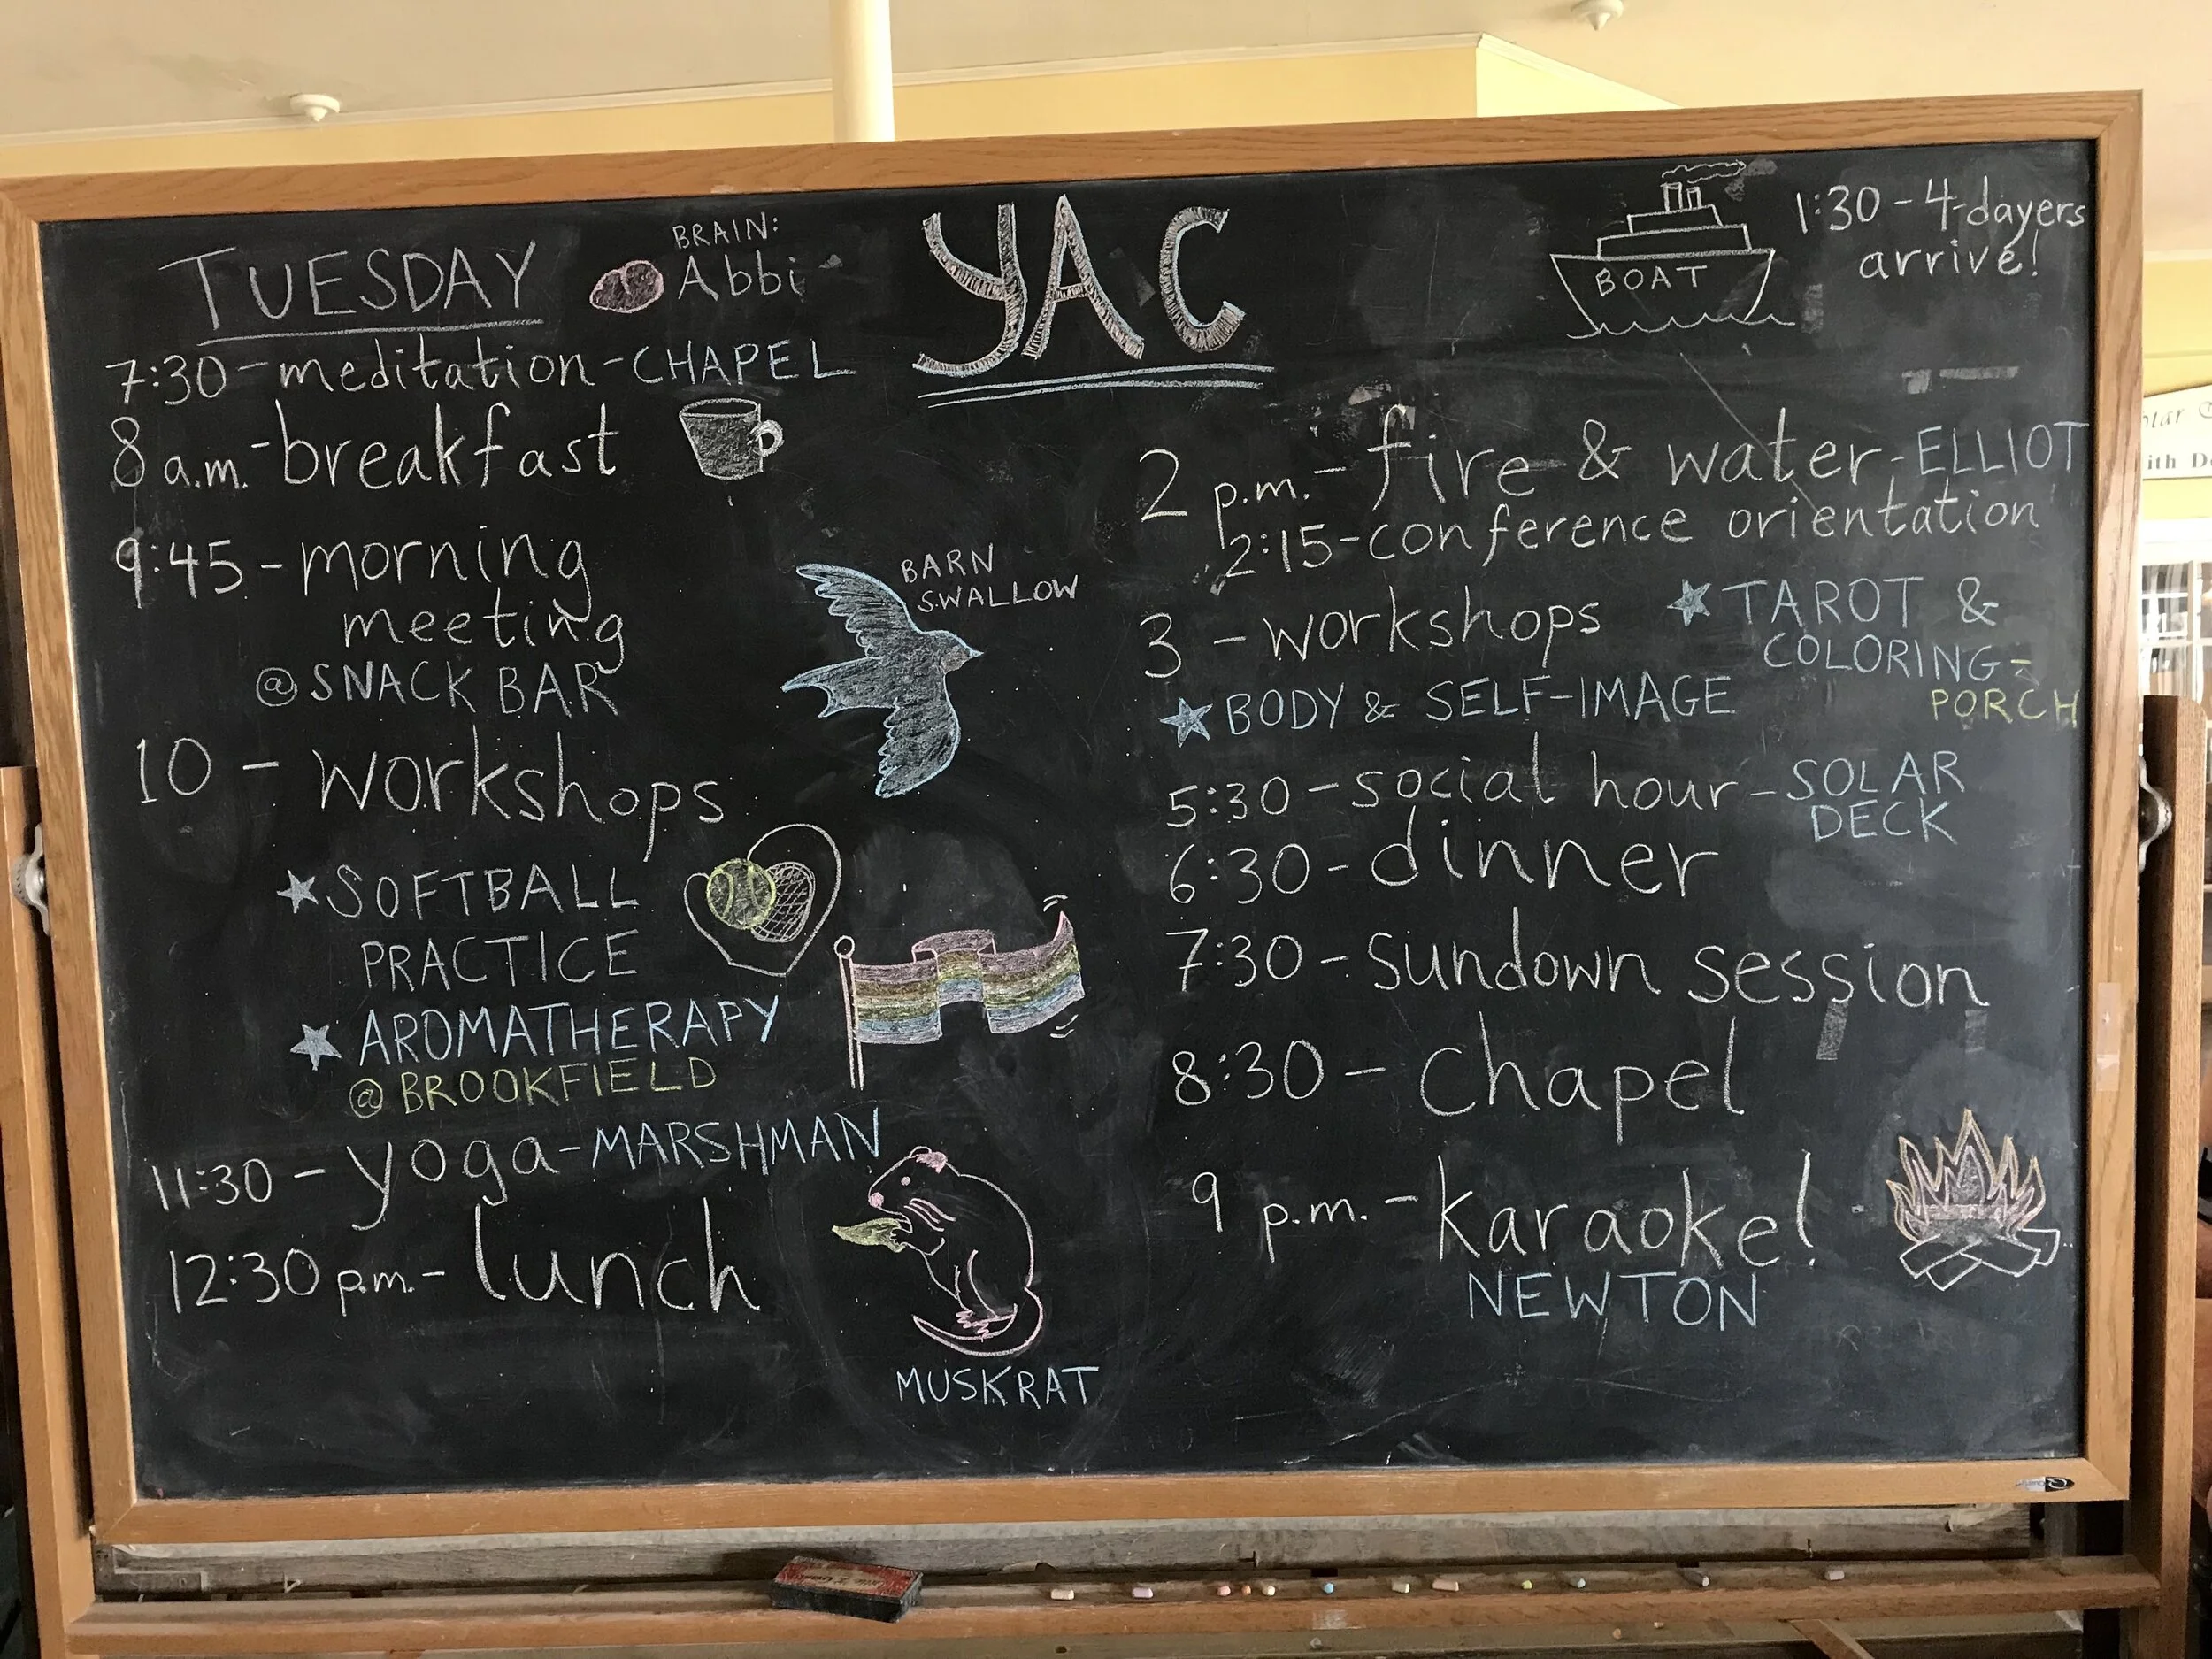 YAC
TUESDAY
BRAIN:
Abbi
7:30 - meditation - CHAPEL
8 a.m. - breakfast
9:45 - morning
meeting
@ SNACK BAR
10 - workshops
SOFTBALL
PRACTICE
AROMATHERAPY
@ BROOKFIELD
11:30 - yoga - MARSHMAN
12:30 p.m. - lunch
BARN
SWALLOW
MUSKRAT
BOAT
1:30 - 4-dayers
arrive!
2 p.m. - fire & water - ELLIOT
2:15 - conference orientation
3 - workshops
TAROT &
COLORING -
PORCH
BODY & SELF-IMAGE
5:30 - social hour - SOLAR
DECK
6:30 - dinner
7:30 - sundown session
8:30 - chapel
9 p.m. - karaoke!
NEWTON